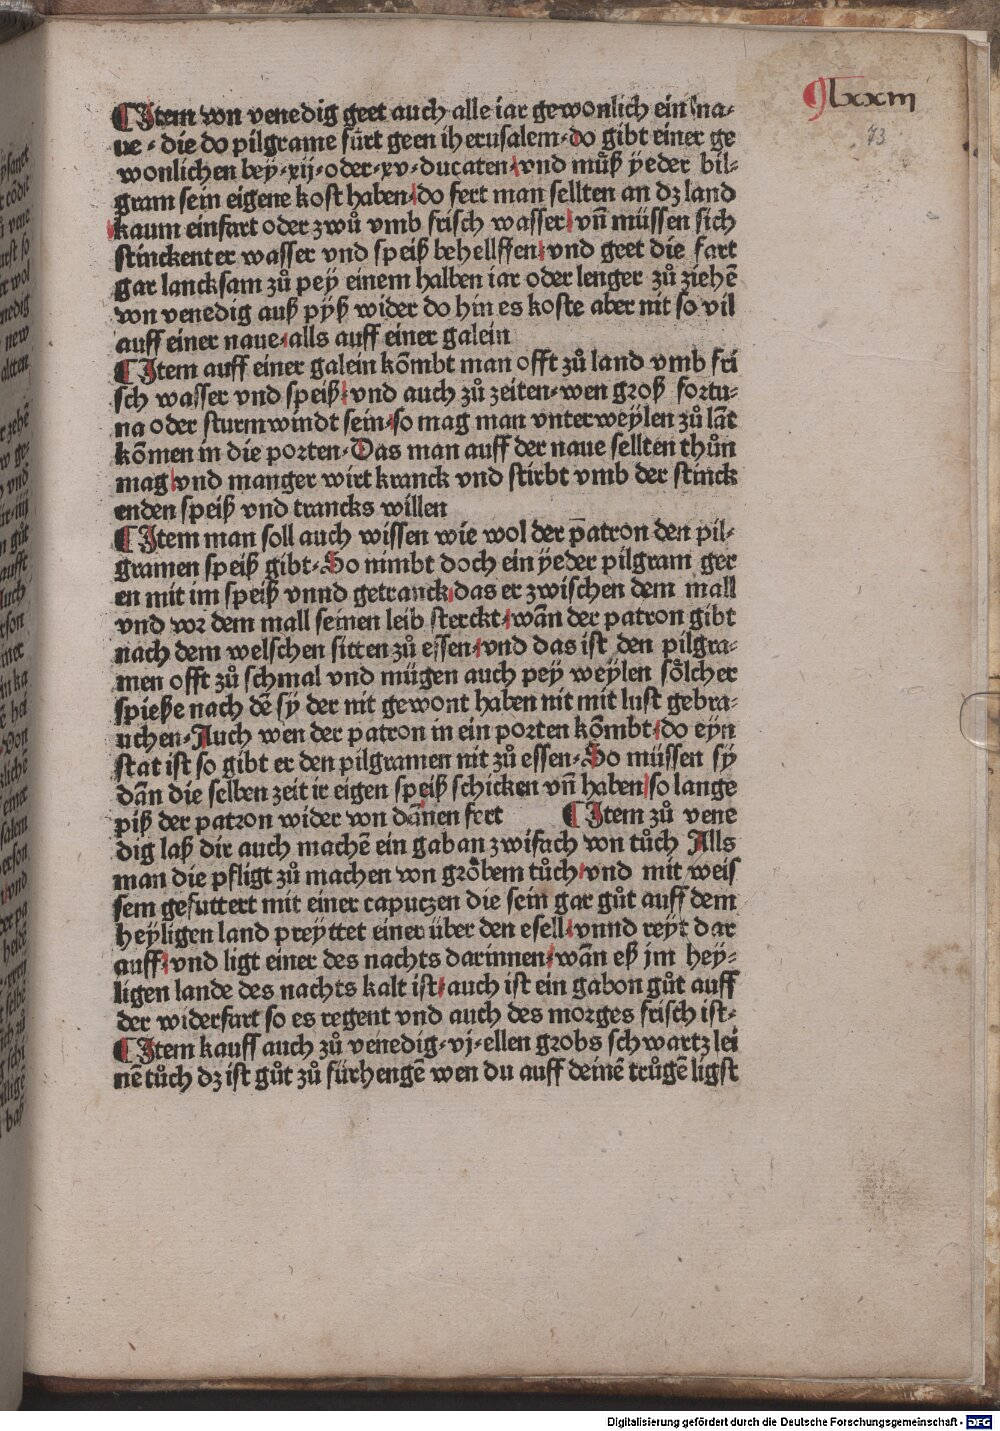 lxxiii
73
¶ Item von venedig geet auch alle iar gewonlich ein na-
ue · die do pilgrame fürt geen iherusalem · do gibt einer ge
wonlichen bey · xij · oder · xv · ducaten · vnd můß yeder bil-
gram sein eigene kost haben · do fert man sellten an dz land
kaum einfart oder zwů vmb frisch wasser · vn̄ müssen sich
stinckenter wasser vnd speiß behellffen · vnd geet die fart
gar lancksam zů pey einem halben iar oder lenger zů ziehē
von venedig auß pyß wider do hin es koste aber nit so vil
auff einer naue · alls auff einer galein
¶ Item auff einer galein kōmbt man offt zů land vmb fri
sch wasser vnd speiß · vnd auch zů zeiten · wen groß fortu-
na oder sturmwindt sein · so mag man vnterweylen zů lāt
kōmen in die porten · Das man auff der naue sellten thůn
mag vnd manger wirt kranck vnd stirbt vmb der stinck
enden speiß vnd trancks willen
¶ Item man soll auch wissen wie wol der patron den pil-
gramen speiß gibt · So nimbt doch ein ÿeder pilgram ger
en mit im speiß vnnd getranck · das er zwischen dem mall
vnd vor dem mall seinen leib sterckt · wān der patron gibt
nach dem welschen sitten zů essen · vnd das ist den pilgra-
men offt zů schmal vnd mügen auch pey weylen sölcher
spieße nach dē sÿ der nit gewont haben nit mit lust gebra-
uchen · Auch wen der patron in ein porten kōmbt · do eyn
stat ist so gibt er den pilgramen nit zů essen · So müssen sÿ
dān die selben zeit ir eigen speiß schicken vn̄ haben so lange
piß der patron wider von dānnen fert ¶ Item zů vene
dig laß dir auch machē ein gaban zwifach von tůch Alls
man die pfligt zů machen von gröbem tůch · vnd mit weis
sem gefuttert mit einer capuczen die sein gar gůt auff dem
heyligen land preyttet einer über den esell · vnnd reyt dar
auff · vnd ligt einer des nachts darinnen · wān eß jm hey-
ligen lande des nachts kalt ist · auch ist ein gabon gůt auff
der widerfart so es regent vnd auch des morges frisch ist ·
¶ Item kauff auch zů venedig · vj · ellen grobs schwartz lei
nē tůch dz ist gůt zů fürhengē wen du auff deinē trůgē ligst
Digitalisierung gefördert durch die Deutsche Forschungsgemeinschaft - DFG